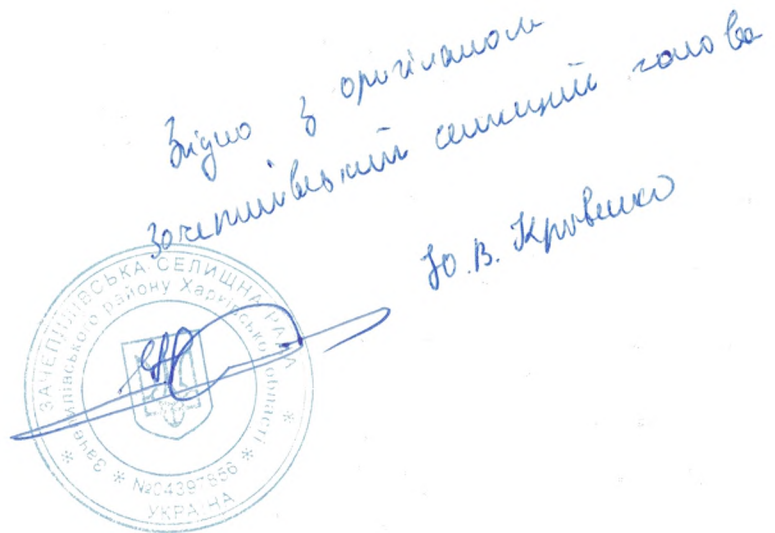 Згідно з оригіналом
Зачепилівський селищний голова
Ю.В. Кривенко
ЗАЧЕПИЛІВСЬКА СЕЛИЩНА РАДА
Зачепилівського району Харківської області
№04397856
УКРАЇНА